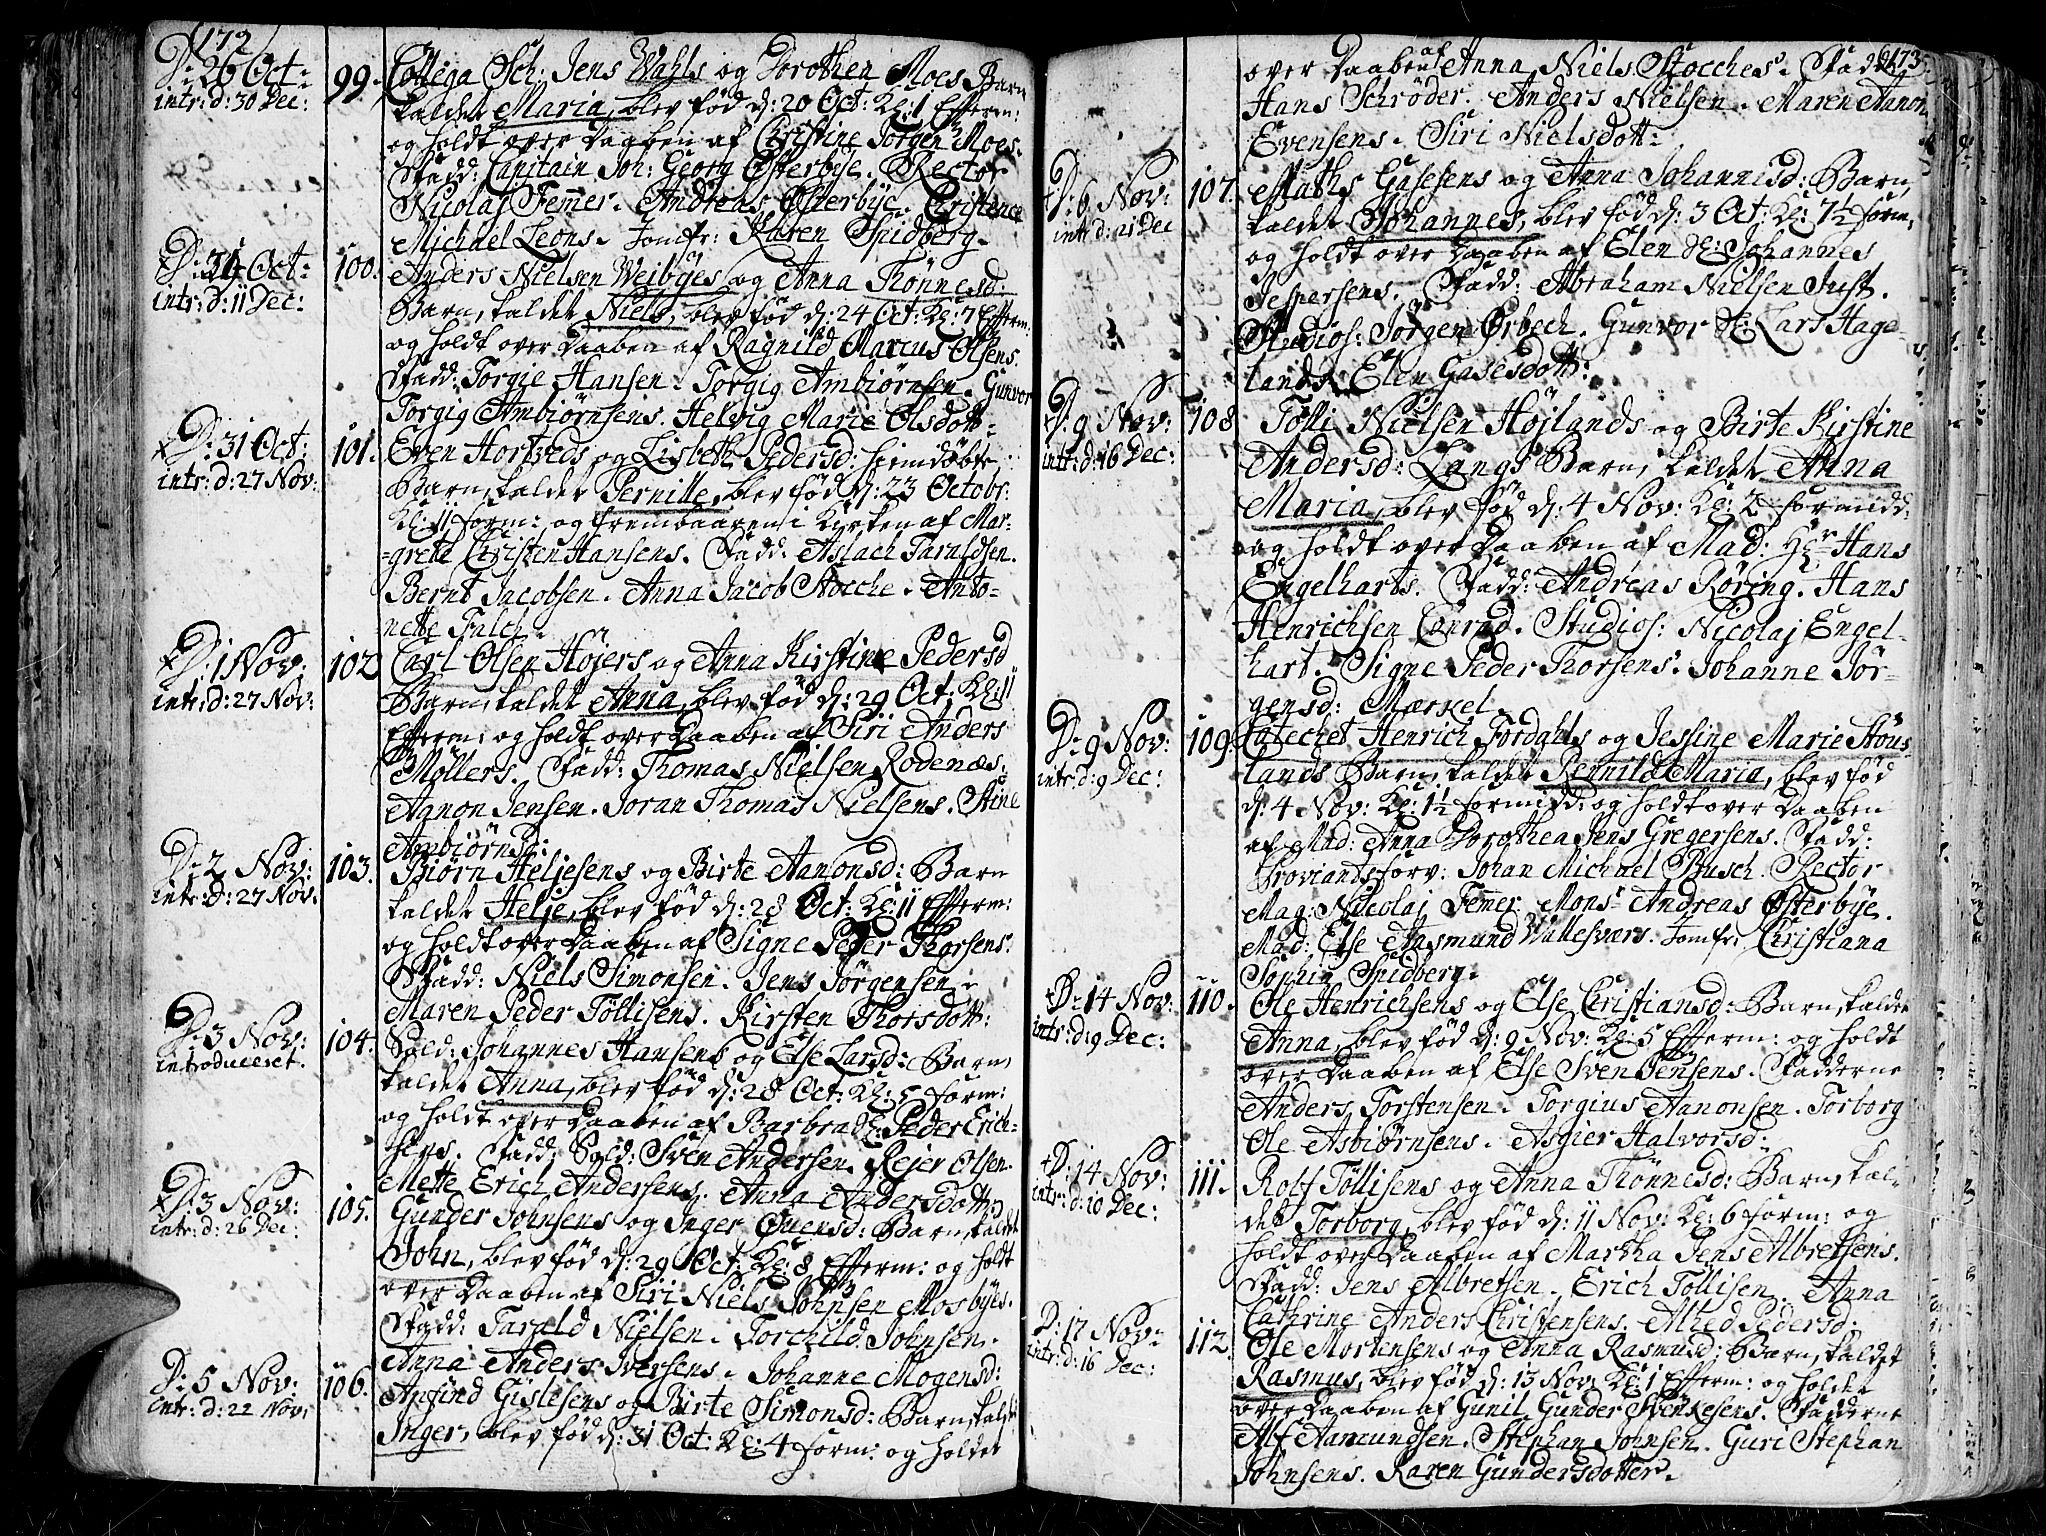 172
D: 26 Oct:
intr: d: 30 Dec:
99. Collega Sch: Jens Wahls og Dorothea Moes Barn
kaldet Maria, blev fød d: 20 Oct: Kl: 1 Efterm:
og holdt over Daaben af Christine Jørgen Moes.
Fadd: Capitain Joh: Georg Østerbye. Rector
Nicolaj Femer. Andreas Østerbye. Cristence
Michael Leons. Jomfr: Karen Spidberg.
D: 31 Oct:
intr: d: 11 Dec:
100. Anders Nielsen Weibyes og Anna Thønnesd:
Barn, kaldet Niels, blev fød d: 24 Oct: Kl: 7 Efterm:
og holdt over Daaben af Ragnild Marcus Olsens.
Fadd: Torgie Hansen. Torgig Ambiørnsen. Gunvor
Torgig Ambiørnsens. Helvig Marie Olsdott:
D: 31 Oct:
intr: d: 27 Nov:
101. Even Hortveds og Lisbeth Pedersd: hiemdøbte
Barn, kaldet Pernille, blev fød d: 23 Octobr:
Kl: 11 form: og frembaaren i Kirken af Mar-
grete Christen Hansens. Fadd: Aslach Taraldsen.
Bernt Jacobsen. Anna Jacob Stocche. Anto-
nette Falch.
D: 1 Nov:
intr: d: 27 Nov:
102 Carl Olsen Højers og Anna Kirstine Pedersd
Barn, kaldet Anna, blev fød d: 29 Oct: Kl: 11
Efterm: og holdt over Daaben af Siri Anders
Møllers. Fadd: Thomas Nielsen Rodenæs.
Aanon Jensen. Joran Thomas Nielsens. Stine
Ambiørnsd:
D: 2 Nov:
intr: d: 27 Nov.
103. Biørn Heljesens og Birte Aanonsd: Barn
kaldet Helje, blev fød d: 28 Oct: Kl: 11 Efterm:
og holdt over Daaben af Signe Peder Thorsens.
Fadd: Niels Simonsen. Jens Jørgensen.
Maren Peder Tøllisens. Kirsten Thorsdott:
D: 3 Nov:
introduceret.
104. Sold: Johannes Hansens og Else Larsd: Barn,
kaldet Anna, blev fød d: 28 Oct: Kl: 5 form:
og holdt over Daaben af Barbra Peder Erich-
sens. Fadd: Sold: Sven Andersen. Rejer Olsen.
Mette Erich Andersens. Anna Andersdott:
D: 3 Nov:
intr: d: 26 Dec:
105. Gunder Johnsens og Inger Ouensd: Barn, kaldet
John, blev fød d: 29 Oct: Kl: 8 Efterm: og holdt
over Daaben af Siri Niels Johnsen Mosbyes.
Fadd: Tarald Nielsen. Torchild Johnsen.
Anna Anders Iversens. Johanne Mogensd:
D: 5 Nov:
intr: d: 22 Nov:
106. Anfind Gislesens og Birte Simonsd: Barn, kaldet
Inger, blev fød d: 31 Oct: Kl: 4 form: og holdet
173.
over Daaben af Anna Niels Stocches. Fadd:
Hans Schrøder. Anders Nielsen. Maren Aanon
Evensens. Siri Nielsdott:
D: 6 Nov:
intr: d: 21 Dec
107. Maths Gasesens og Anna Johannesd: Barn,
kaldet Johannes, blev fød d: 3 Oct: Kl: 7½ form,
og holdt over Daaben af Elen Johannes
Jespersens. Fadd: Abraham Nielsen Just.
Studios: Jørgen Ørbech. Gunvor Lars Hage-
lands. Elen Gasesdott:
D: 9 Nov:
intr: d: 16 Dec:
108 Tølli Nielsen Højlands og Birte Kirstine
Andersd: Langs Barn, kaldet Anna
Maria, blev fød d: 4 Nov: Kl: 2 formidd:
og holdt over Daaben af Mad: Hr Hans
Engelharts. Fadd: Andreas Røring. Hans
Henrichsen Conrad. Studios: Nicolaj Engel-
hart. Signe Peder Thorsens. Johanne Jør-
gensd: Mærkel.
D: 9 Nov:
intr: d: 9 Dec:
109. Catechet Henrich Fordahls og Jessine Marie Støus-
lands Barn, kaldet Rennild Maria, blev fød
d: 4 Nov: Kl: 1½ formidd: og holdt over Daaben
af Mad: Anna Dorothea Jens Gregersens. Fadd:
Proviandsforv: Johan Michael Stusch. Rector
Mag: Nicolaj Femer. Monsr Andreas Østerbye.
Mad: Else Aasmund Wattesværs. Jomfr: Christiana
Sophia Spidberg.
D: 14 Nov:
intr: d: 9 Dec:
110. Ole Henrichsens og Else Christiansd: Barn, kaldet
Anna, blev fød d: 9 Nov: Kl: 5 Efterm: og holdt
over Daaben af Else Sven Jensens. Fadderne
Anders Torstensen. Torgius Aanonsen. Torborg
Ole Asbiørnsens. Asgier Halvorsd:
D: 14 Nov:
intr: d: 10 Dec:
111. Rolf Tøllisens og Anna Thønnesd: Barn, kal-
det Torborg, blev fød d: 11 Nov: Kl: 6 form: og
holdt over Daaben af Martha Jens Albretsens.
Fadd: Jens Albretsen. Erich Tøllisen. Anna
Cathrine Anders Christensens. Alhed Pedersd:
D: 17 Nov:
intr: d: 16 Dec:
112. Ole Mortensens og Anna Rasmusd: Barn, kaldet
Rasmus, blev fød d: 13 Nov: Kl: 1 Efterm: og holdet
over Daaben af Gunil Gunder Svenkesens. Fadderne
Alf Aamundsen. Stephan Johnsen. Guri Stephan
Johnsens. Karen Gundersdotter.